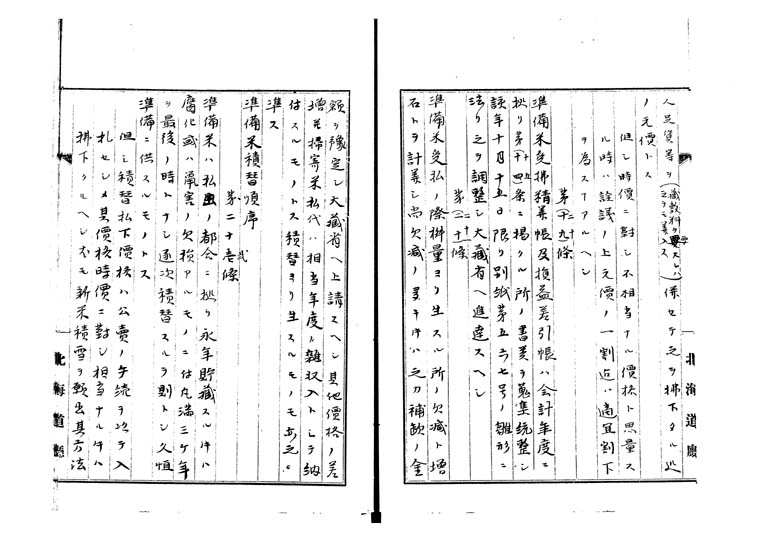 人足賃等ヲ(蔵敷料ヲ要スレハ之ヲモ算入ス)併セテ之ヲ拂下タル返
ノ元價トス
但シ時價ニ對シ不相當ナル價格ト思量ス
ル時ハ詮議ノ上元價ノ一割近ハ適宜割下
ヲ為スコアルヘシ
第二十九條
準備米受拂精算帳及損益差引帳ハ會計年度ニ
拠リ第十四條ニ掲クル所ノ書類ヲ蒐集統整シ
該年十月十五日限リ別紙第五六七号ノ雛形ニ
法リ之ヲ調整シ大藏省ヘ進達スヘシ
第二十條
準備米受払ノ際桝量ヨリ生スル所ノ欠減ト増
石トヲ計算シ尚欠減ノ多キ件ハ之カ補歓ノ金
額ヲ豫定シ大藏省ヘ上請スヘシ其他價格ノ差
増并掃寄米払代ハ相当年度ノ雑収入トシテ納
付スルモノトス積替ヨリ生スルモノモ亦之ニ
準ス
準備米積替順序
第二十壱條
準備米ハ払出ノ都合ニ拠リ永年貯藏スル件ハ
腐化或ハ鼠害ノ欠損アルモノニ付丸満三ケ年
ヲ最後ノ時トナシ逐次積替スルヲ則トシ久恒
準備ニ供スルモノトス
但シ積替払下價格ハ公賣ノ手続ヲ以テ入
札セシメ其價格時價ニ對シ相当ナル件ハ
拂下クルヘシ尤モ新米積雪ヲ
北海道廳
北海道廳